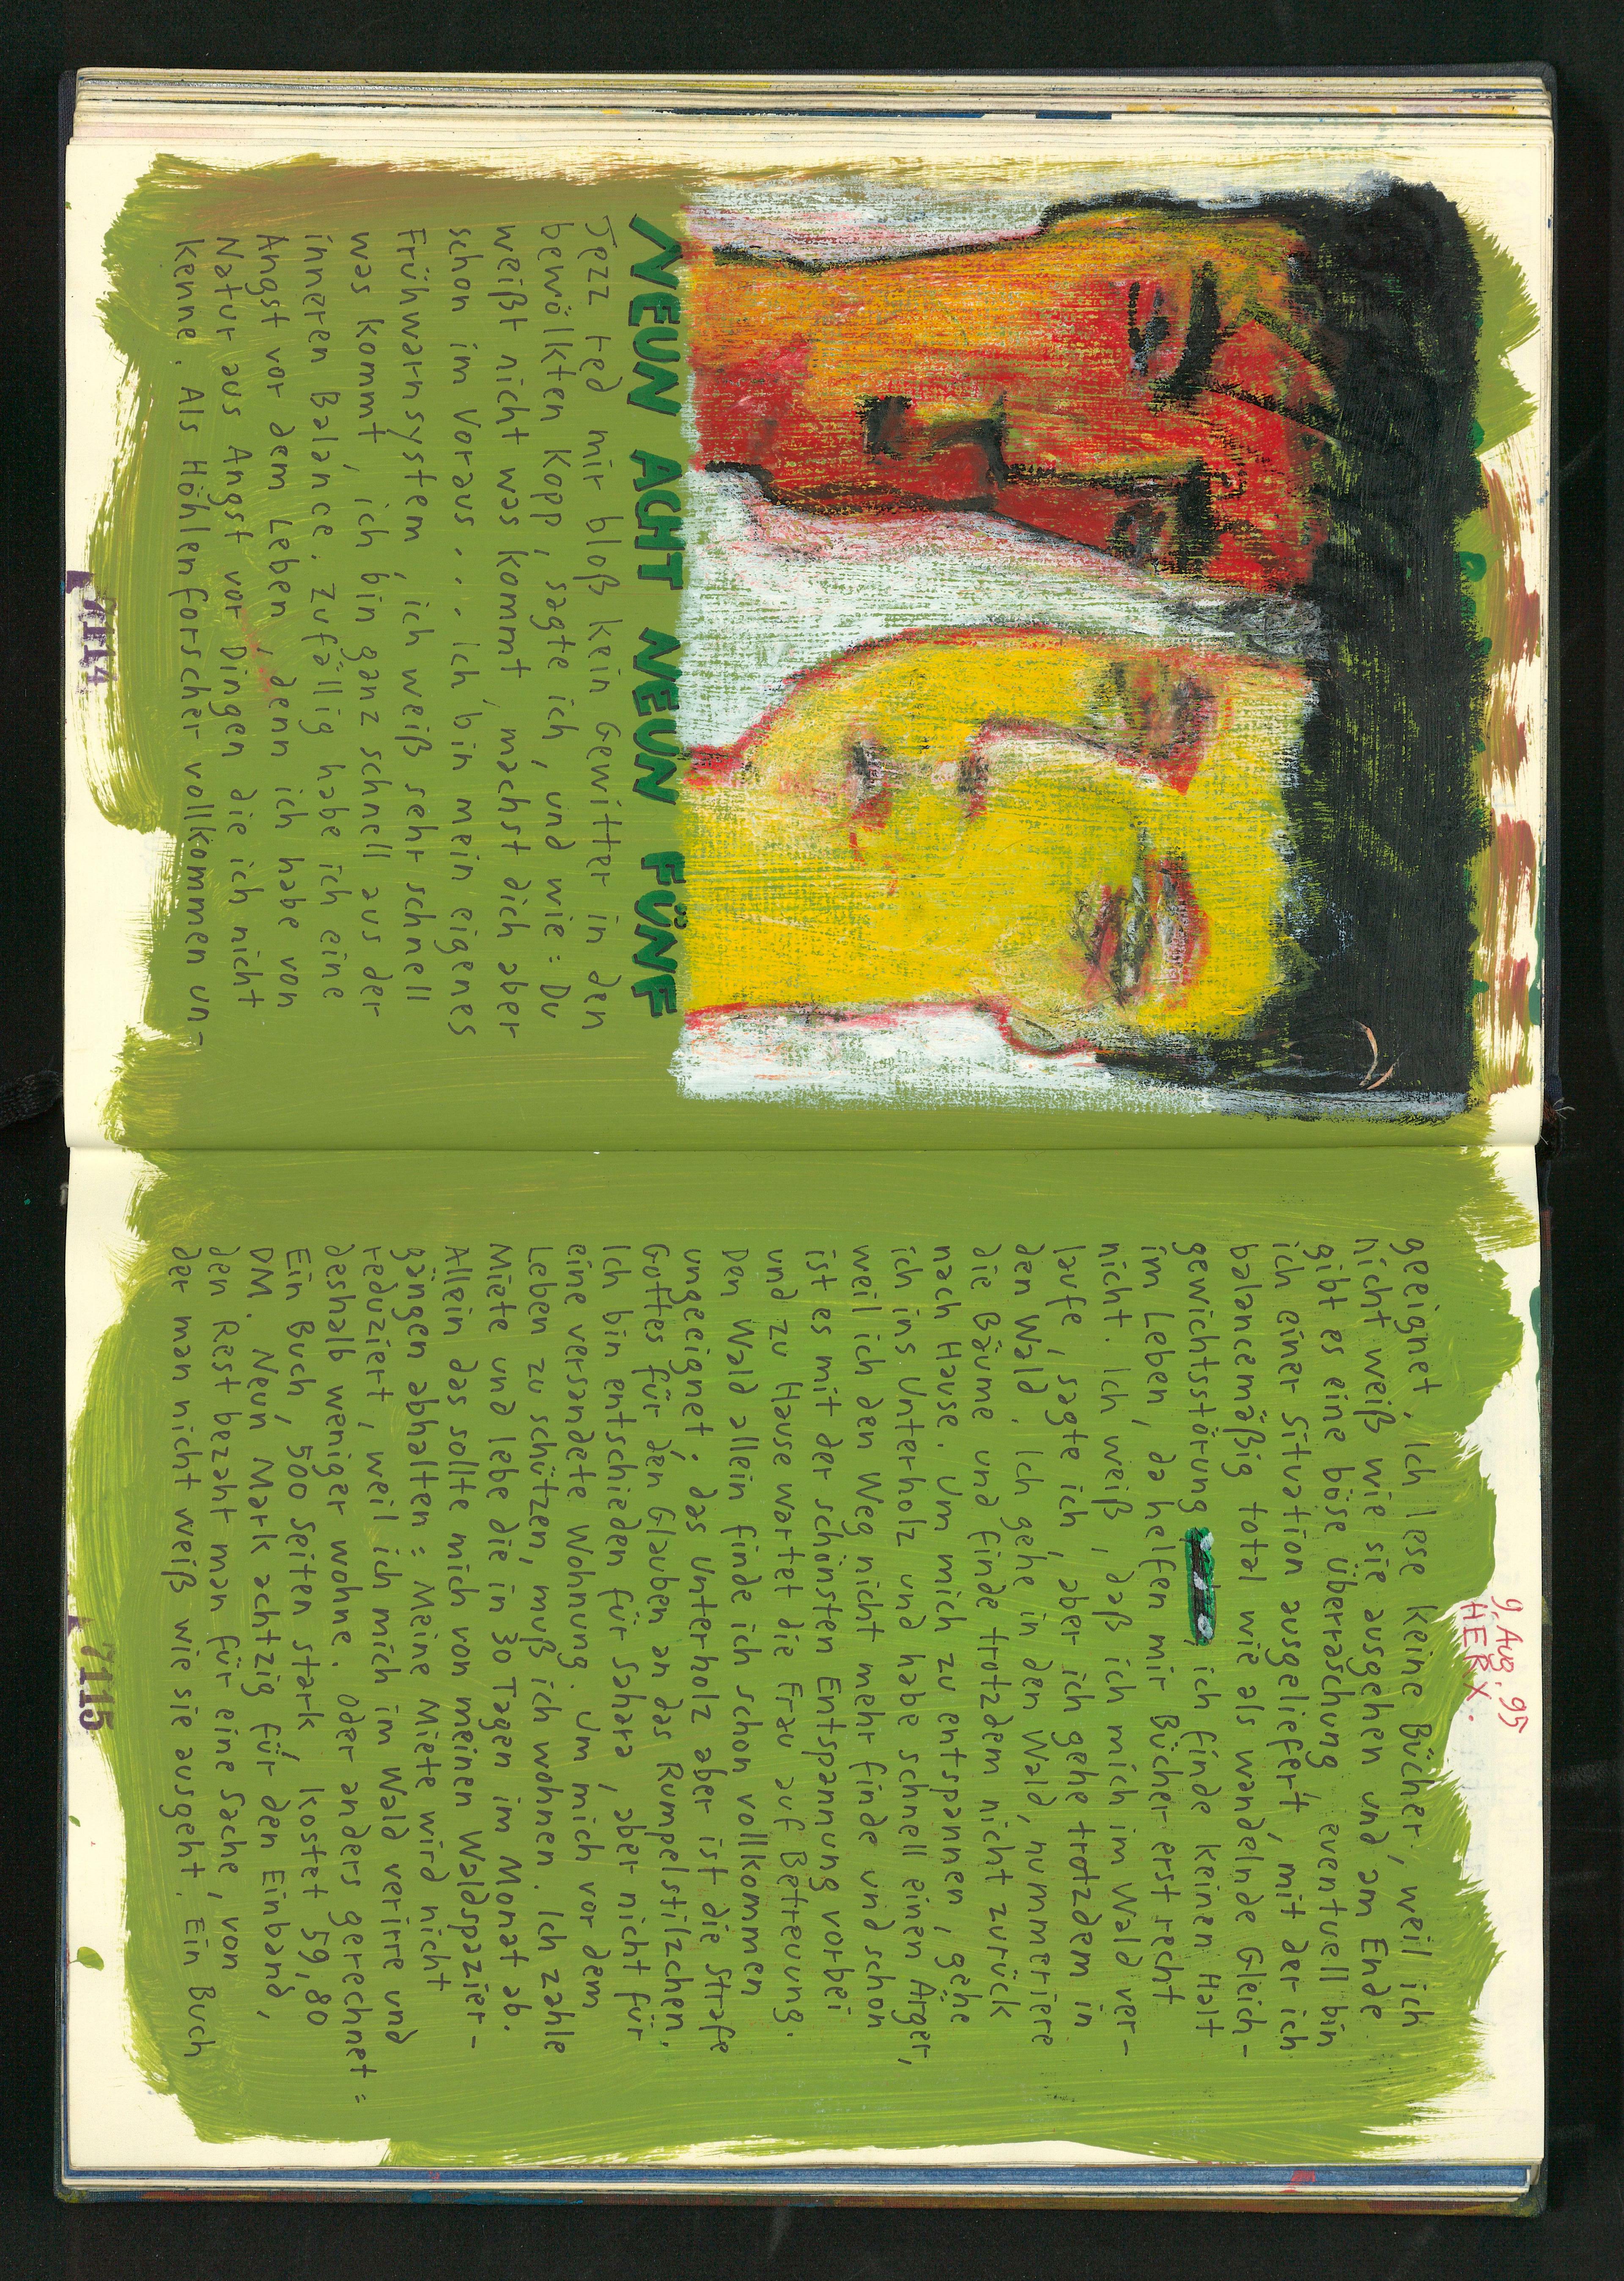 NEUN ACHT NEUN FÜNF
Jezz red mir bloß kein Gewitter in den
bewölkten Kopp, sagte ich, und wie: Du
weißt nicht was kommt, machst dich aber
schon im Voraus... Ich bin mein eigenes
Frühwarnsystem, ich weiß sehr schnell
was kommt, ich bin ganz schnell aus der
inneren Balance. Zufällig habe ich eine
Angst vor dem Leben, denn ich habe von
Natur aus Angst vor Dingen die ich nicht
kenne. Als Höhlenforscher vollkommen un-
7114
9. Aug. 95
HERX.
geeignet. Ich lese keine Bücher, weil ich
nicht weiß wie sie ausgehen und am Ende
gibt es eine böse Überraschung, eventuell bin
ich einer Situation ausgeliefert, mit der ich
balancemäßig total wie als wandelnde Gleich-
gewichtsstörung, ich finde keinen Halt
im Leben, da helfen mir Bücher erst recht
nicht. Ich weiß, daß ich mich im Wald ver-
laufe, sagte ich, aber ich gehe trotzdem in
den Wald. Ich gehe in den Wald, nummeriere
die Bäume und finde trotzdem nicht zurück
nach Hause. Um mich zu entspannen, gehe
ich ins Unterholz und habe schnell einen Ärger,
weil ich den Weg nicht mehr finde und schon
ist es mit der schönsten Entspannung vorbei
und zu Hause wartet die Frau auf Betreuung.
Den Wald allein finde ich schon vollkommen
ungeeignet; das Unterholz aber ist die Strafe
Gottes für den Glauben an das Rumpelstilzchen.
Ich bin entschieden für Sahara, aber nicht für
eine versandete Wohnung. Um mich vor dem
Leben zu schützen, muß ich wohnen. Ich zahle
Miete und lebe die in 30 Tagen im Monat ab.
Allein das sollte mich von meinen Waldspazier-
gängen abhalten: Meine Miete wird nicht
reduziert, weil ich mich im Wald verirre und
deshalb weniger wohne. Oder anders gerechnet:
Ein Buch, 500 Seiten stark, kostet 59,80
DM. Neun Mark achtzig für den Einband,
den Rest bezaht man für eine Sache, von
der man nicht weiß wie sie ausgeht. Ein Buch
7115